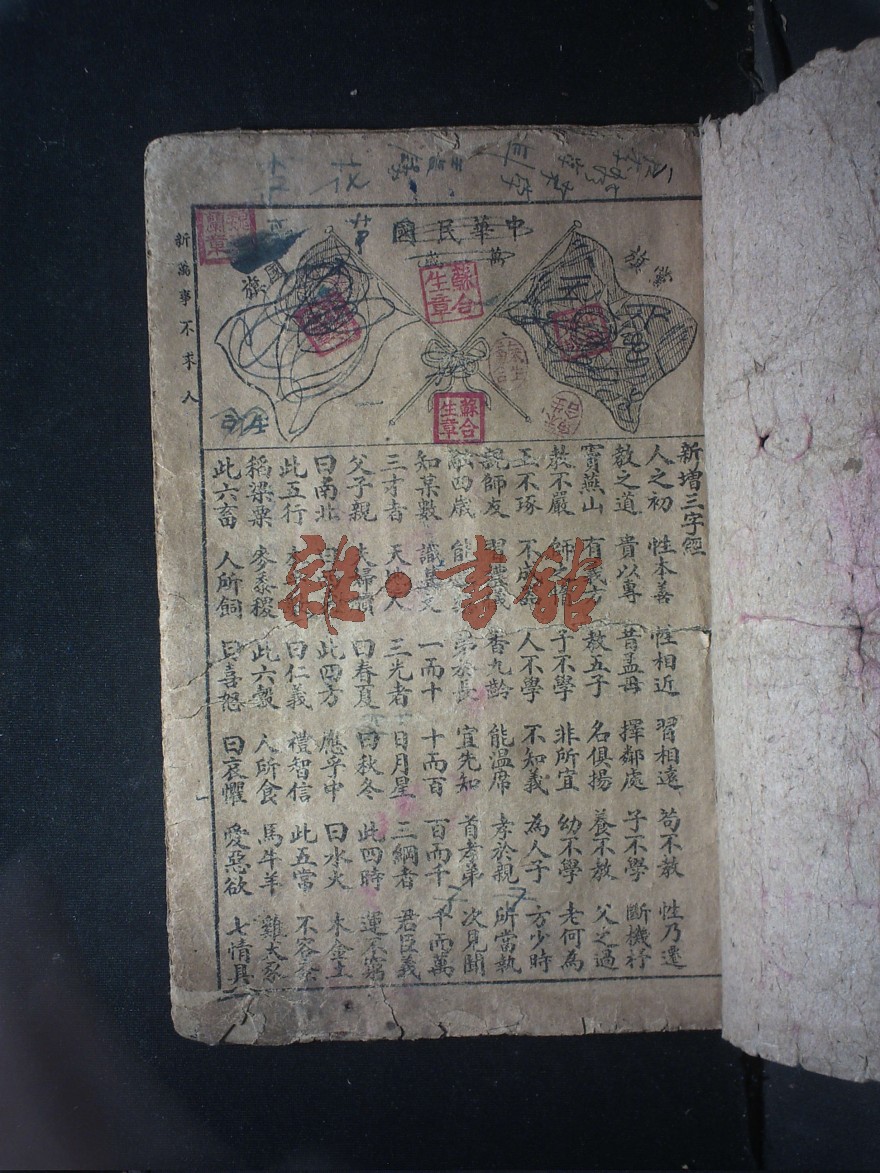 中華民國
萬歲
國旗
新萬事不求人
蘇合生章
蘇合生章
新增三字經
人之初 性本善 性相近 習相遠 茍不教 性乃遷
教之道 貴以專 昔孟母 擇鄰處 子不學 斷機杼
竇燕山 有義方 教五子 名俱揚 養不教 父之過
教不嚴 師之惰 子不學 非所宜 幼不學 老何為
玉不琢 不成器 人不學 不知義 為人子 方少時
親師友 習禮儀 香九齡 能溫席 孝於親 所當執
融四歲 能 弟於長 宜先知 首孝弟 次見聞
知某數 識某文 一而十 十而百 百而千 千而萬
三才者 天 人 三光者 日月星 三綱者 君臣義
父子親 夫婦順 曰春夏 曰秋冬 此四時 運不窮
曰南北 曰 此四方 應乎中 曰水火 木金土
此五行 曰仁義 禮智信 此五常 不容紊
稻梁粟 麥黍稷 此六穀 人所食 馬牛羊 雞犬豕
此六畜 人所飼 曰喜怒 曰哀懼 愛惡欲 七情具
雜·書館